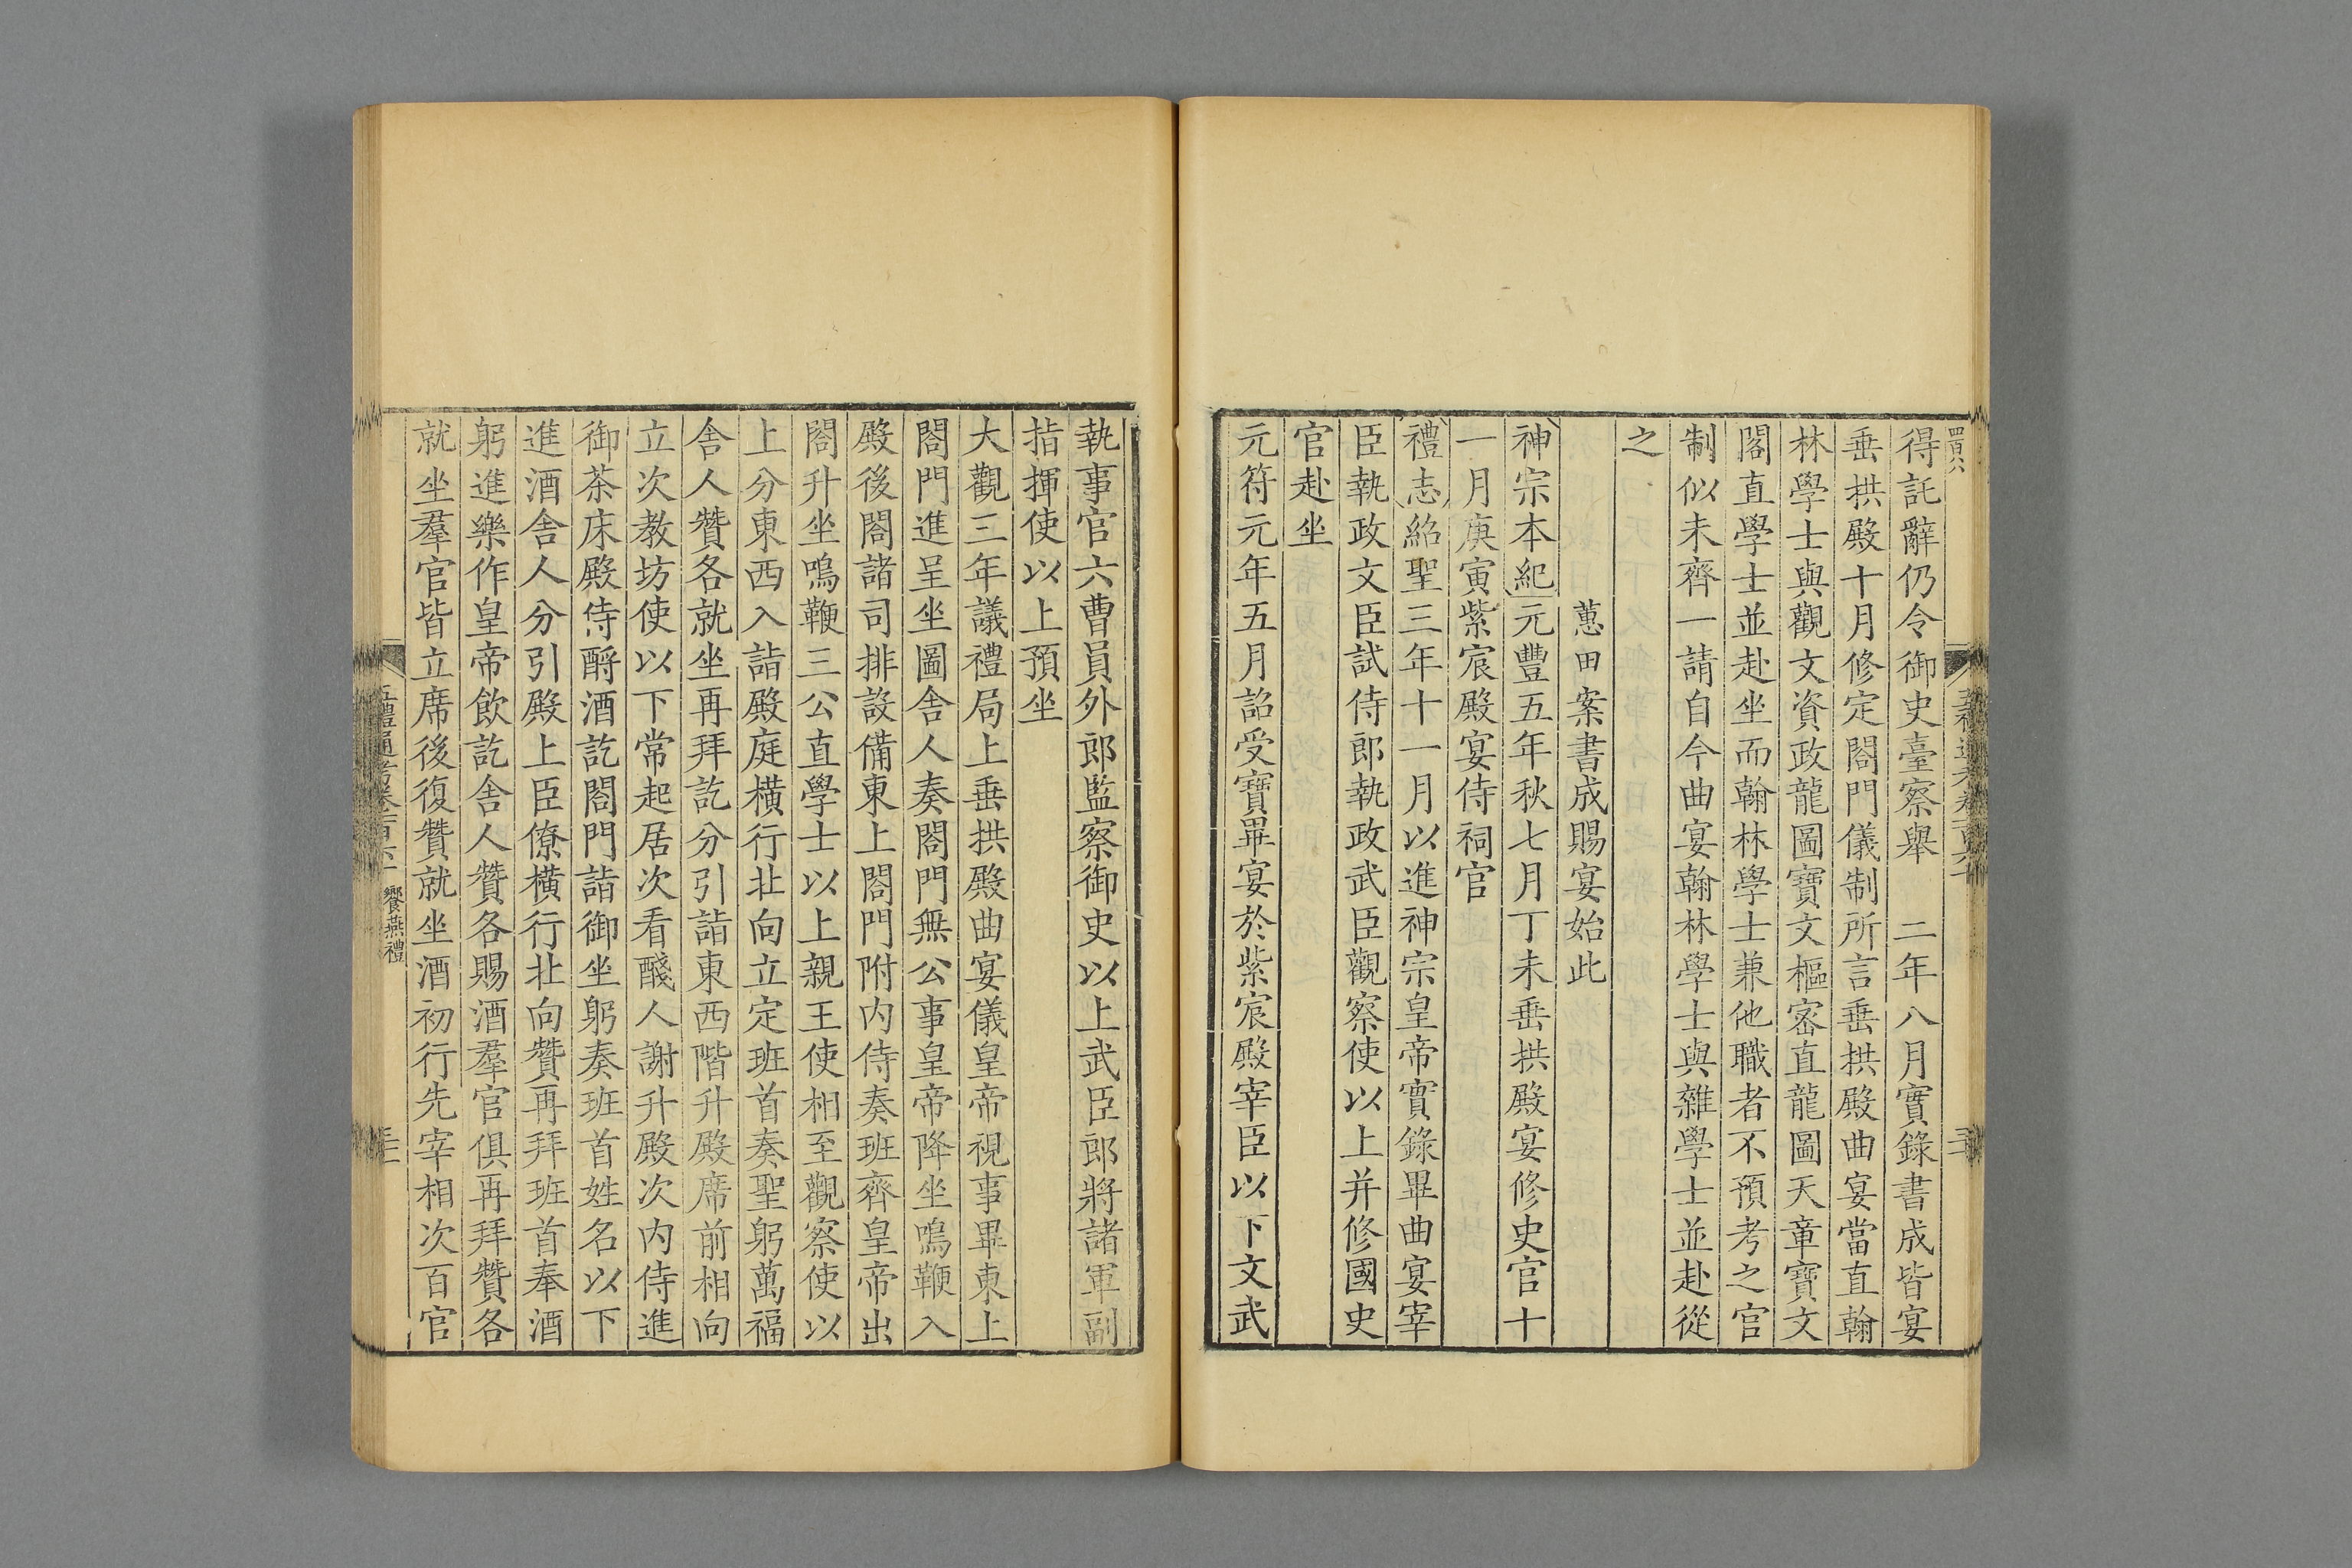 得託辭仍令御史臺察舉　二年八月實錄書成皆宴
垂拱殿十月修定閤門儀制所言垂拱殿曲宴當直翰
林學士與觀文資政龍圖寶文樞宻直龍圖天章寶文
閣直學士並赴坐而翰林學士兼他職者不預考之官
制似未齊一請自今曲宴翰林學士與雜學士並赴從
之
蕙田案書成賜宴始此
神宗本紀元豐五年秋七月丁未垂拱殿宴修史官十
一月庚寅紫宸殿宴侍祠官
禮志紹聖三年十一月以進神宗皇帝實錄畢曲宴宰
臣執政文臣試侍郎執政武臣觀察使以上并修國史
官赴坐
元符元年五月詔受寶畢宴於紫宸殿宰臣以下文武
執事官六曹員外郎監察御史以上武臣郎將諸軍副
指揮使以上預坐
大觀三年議禮局上垂拱殿曲宴儀皇帝視事畢東上
閤門進呈坐圖舍人奏閤門無公事皇帝降坐鳴鞭入
殿後閤諸司排設備東上閤門附内侍奏班齊皇帝出
閤升坐鳴鞭三公直學士以上親王使相至觀察使以
上分東西入詣殿庭橫行北向立定班首奏聖躬萬福
舍人贊各就坐再拜訖分引詣東西階升殿席前相向
立次教坊使以下常起居次看醆人謝升殿次内侍進
御茶床殿侍酹酒訖閤門詣御坐躬奏班首姓名以下
進酒舍人分引殿上臣僚橫行北向贊再拜班首奉酒
躬進樂作皇帝飲訖舍人贊各賜酒羣官俱再拜贊各
就坐羣官皆立席後復贊就坐酒初行先宰相次百官
饗燕禮